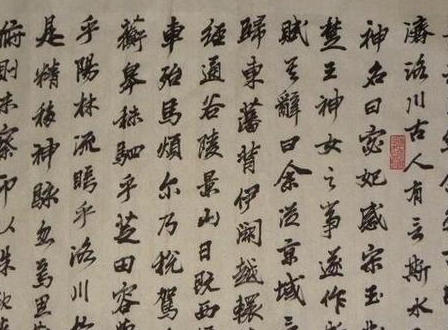 濟洛川古人有言斯水
神名曰宓妃感宋玉
楚王神女之事遂作
賦其辭曰余從京域
歸東藩背伊闕越轘
經通谷陵景山日既西
車殆馬煩尔乃稅駕
蘅皋秣駟乎芝田容
乎陽林流眄乎洛川
是精移神駭忽焉思
俯則未察仰以殊